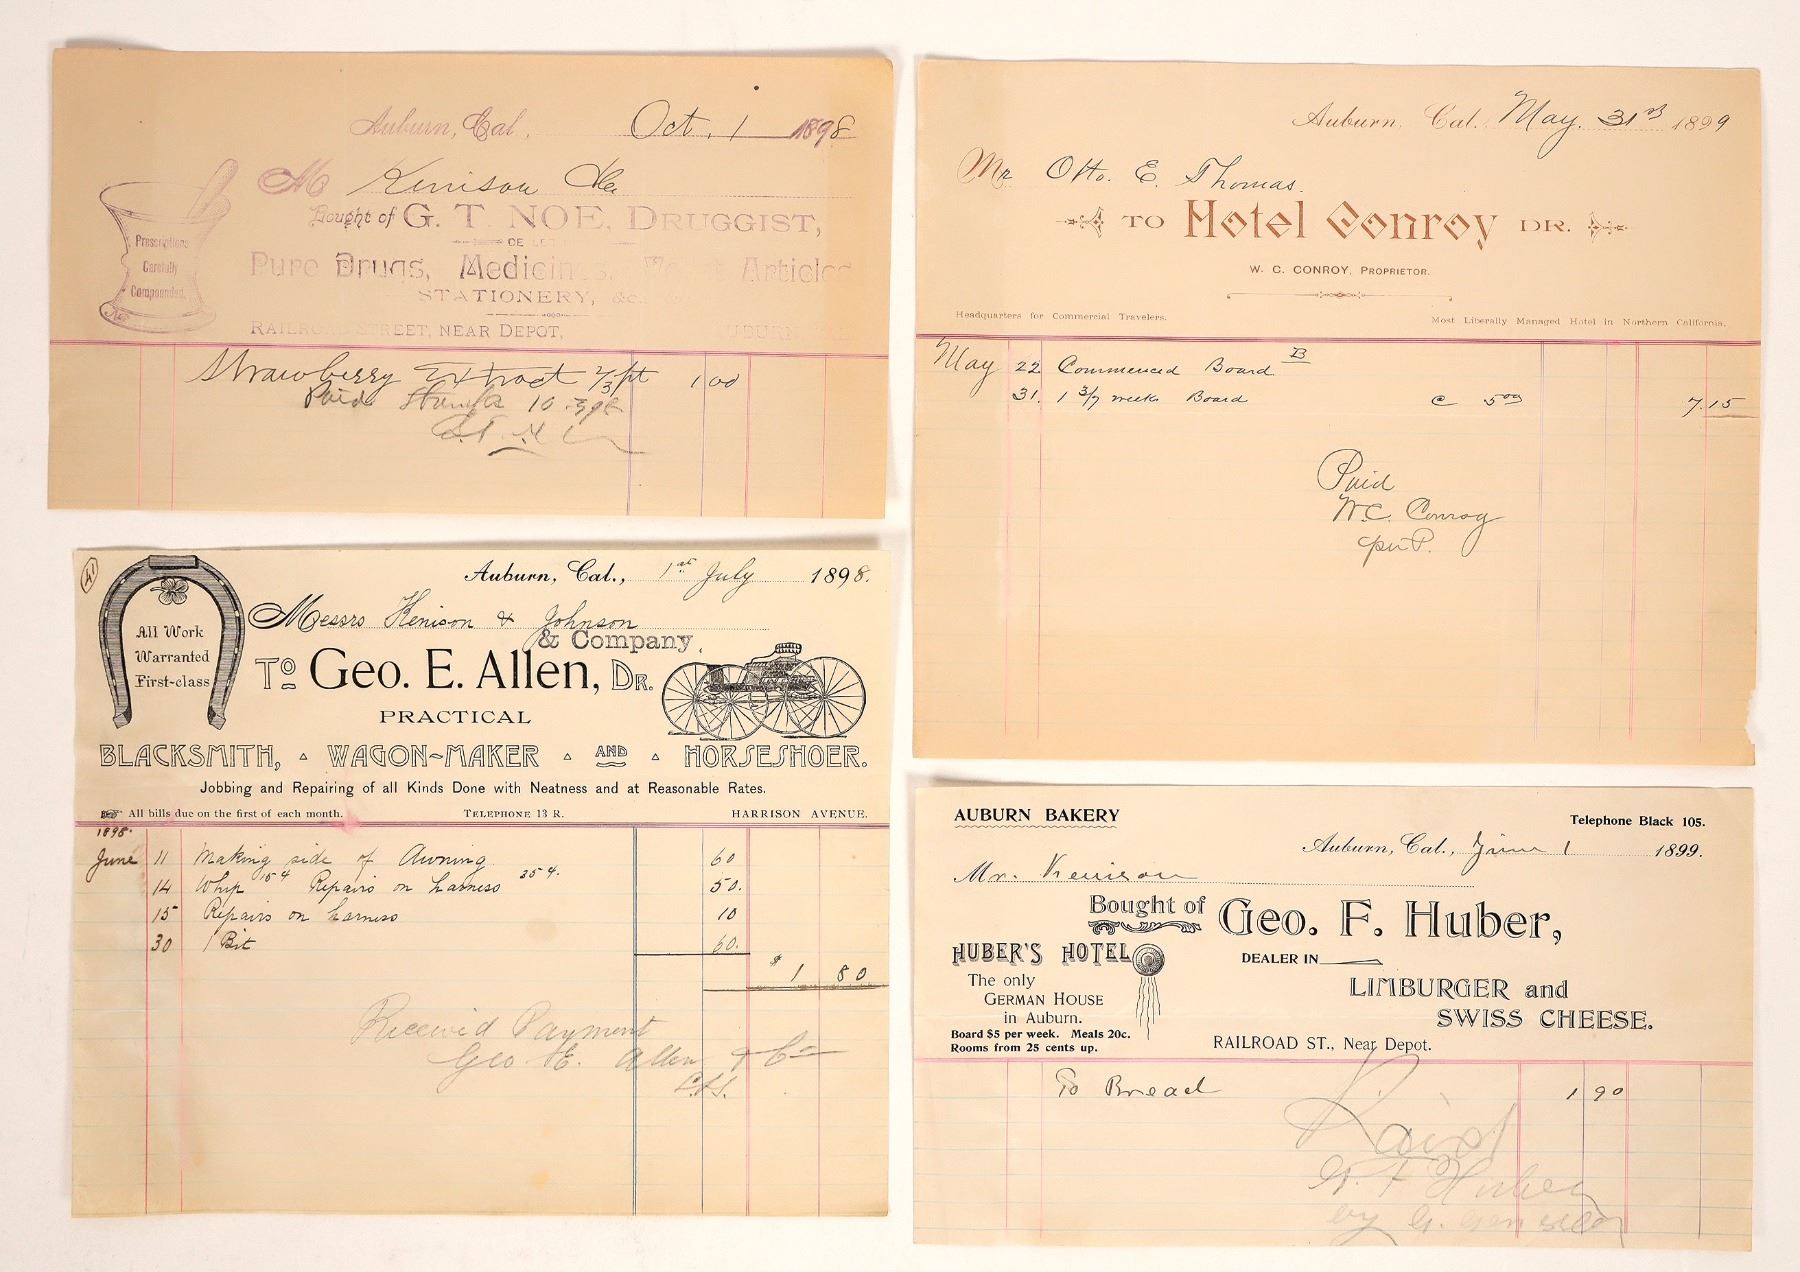 Auburn, Cal. Oct. 1 1898
M Kenison
Bought of G. T. NOE, DRUGGIST,
Pure Drugs, Medicines, Articles
STATIONERY, &c.
RAILROAD STREET, NEAR DEPOT,
Prescriptions
Carefully
Compounded.
Strawberry Extract 2/3 pt 1 00
Paid
Auburn, Cal. May. 31st 1899
Mr Otto. E. Thomas.
TO Hotel Conroy DR.
W. C. CONROY, PROPRIETOR.
Headquarters for Commercial Travelers. Most Liberally Managed Hotel in Northern California.
May 22 Commenced Board B
31. 1 3/7 weeks Board @ 5 00 7.15
Paid
W.C. Conroy
per P.
41
Auburn, Cal., 1st July 1898.
Messrs Kenison & Johnson
& Company.
To Geo. E. Allen, Dr.
PRACTICAL
BLACKSMITH, WAGON-MAKER AND HORSESHOER.
Jobbing and Repairing of all Kinds Done with Neatness and at Reasonable Rates.
All bills due on the first of each month. TELEPHONE 13 R. HARRISON AVENUE.
All Work
Warranted
First-class
1898.
June 11 Making side of Awning 60
14 Whip 15¢ Repairs on harness 35¢. 50.
15 Repairs on harness 10
30 1 Bit 60.
$ 1 80
Received Payment
Geo E. Allen & Co
AUBURN BAKERY Telephone Black 105.
Auburn, Cal., June 1 1899.
Mr. Kenison
Bought of Geo. F. Huber,
DEALER IN
LIMBURGER and
SWISS CHEESE.
RAILROAD ST., Near Depot.
HUBER'S HOTEL
The only
GERMAN HOUSE
in Auburn.
Board $5 per week. Meals 20c.
Rooms from 25 cents up.
To Bread 1 90
Paid
G. F Huber
by G.